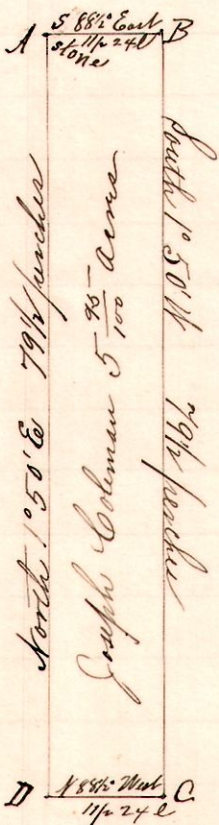 A S 88½° East B
11p 24l
stone
South 1° 50' W 79½ perches
Joseph Coleman 5 95/100 acres
North 1° 50' E 79½ perches
D N 88½° West C
11p 24l